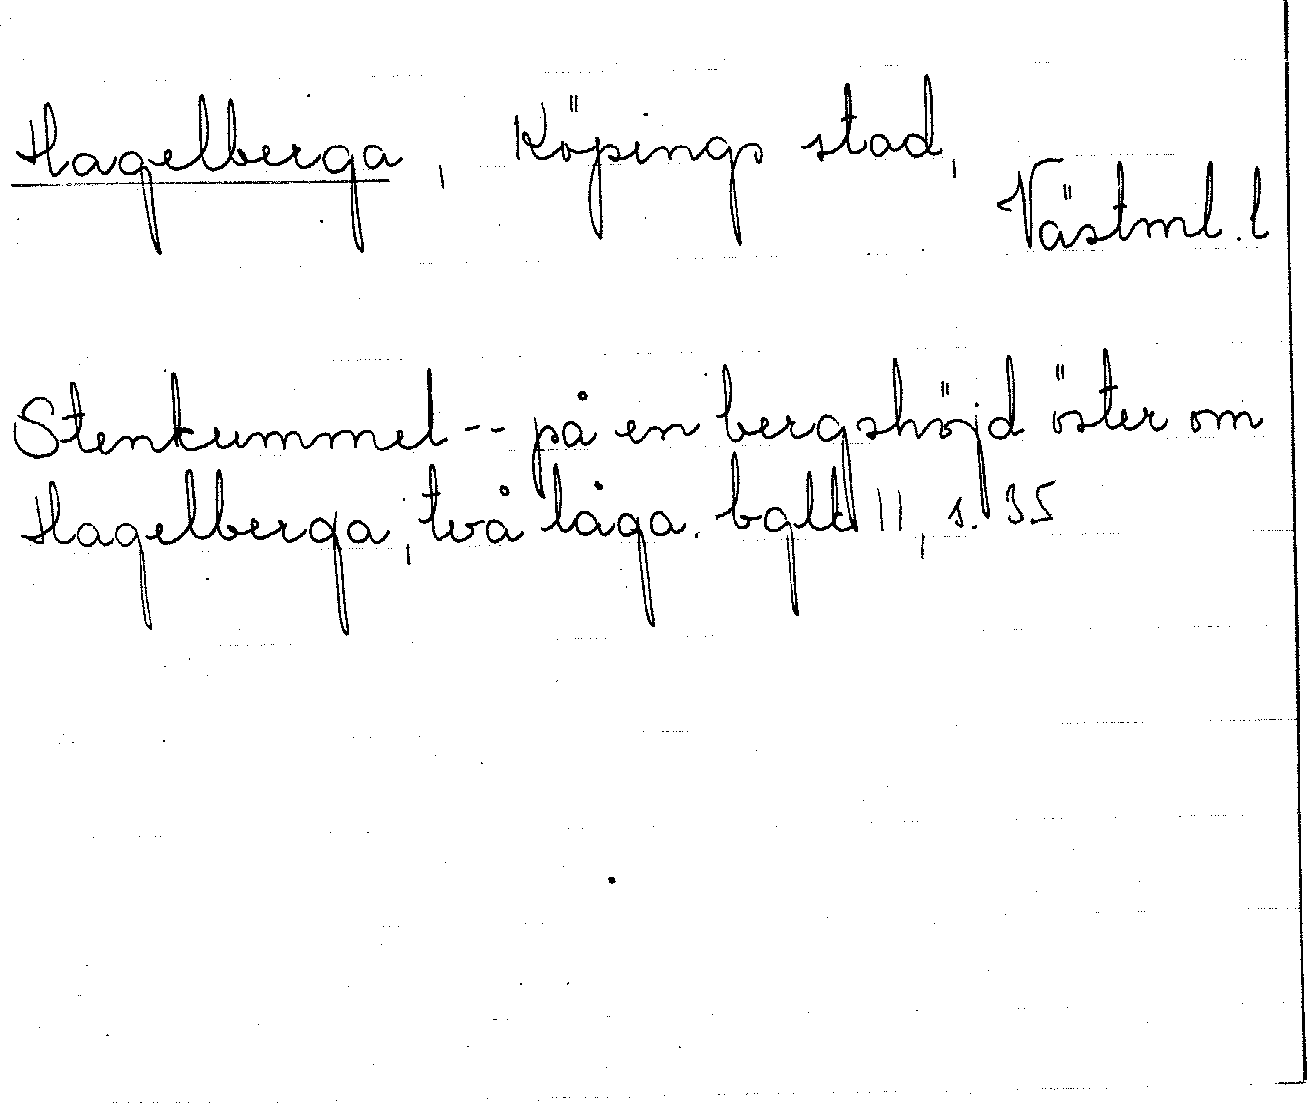 Hagelberga, Köpings stad,
Västml. l
Stenkummel -- på en bergshöjd öster om
Hagelberga, två låga. bgld 11, s. 35